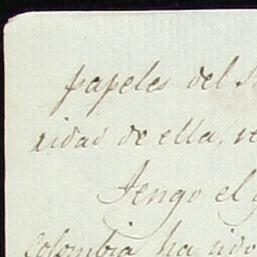 papeles del
ridad de ella,
Tengo el
Colombia ha sido